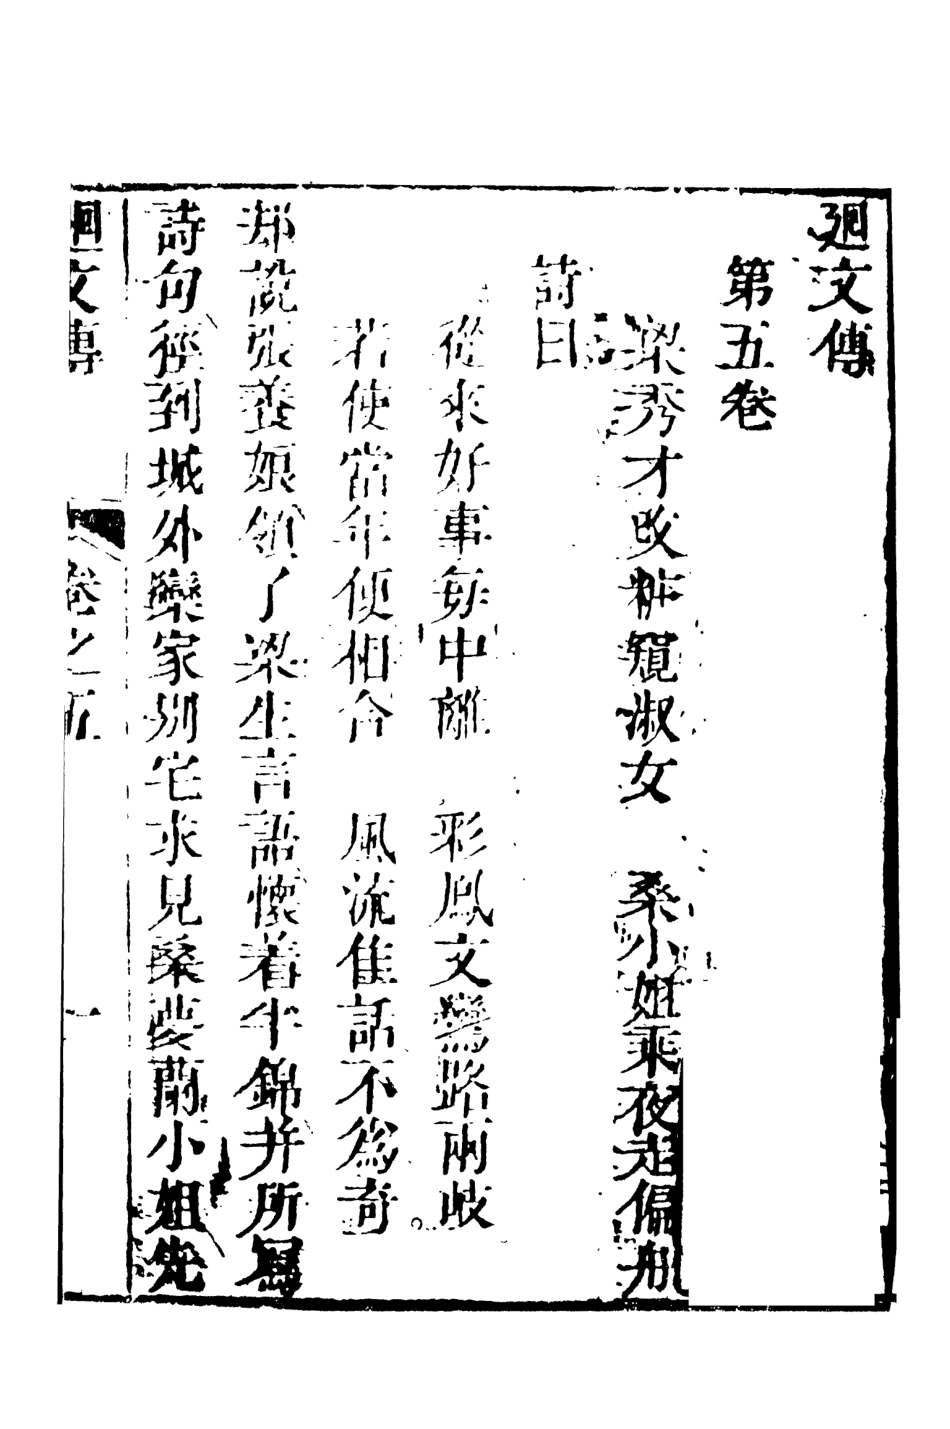 廻文傳
第五卷
梁秀才改粧窺淑女　桑小姐乘夜走偏舟
詩曰
從來好事每中離　彩鳳文鸞路兩歧
若使當年便相合　風流佳話不為奇
却說張養娘領了梁生言語懷着半錦并所寫
詩句徑到城外欒家別宅求見桑夢蘭小姐先
廻文傳　卷之五　一